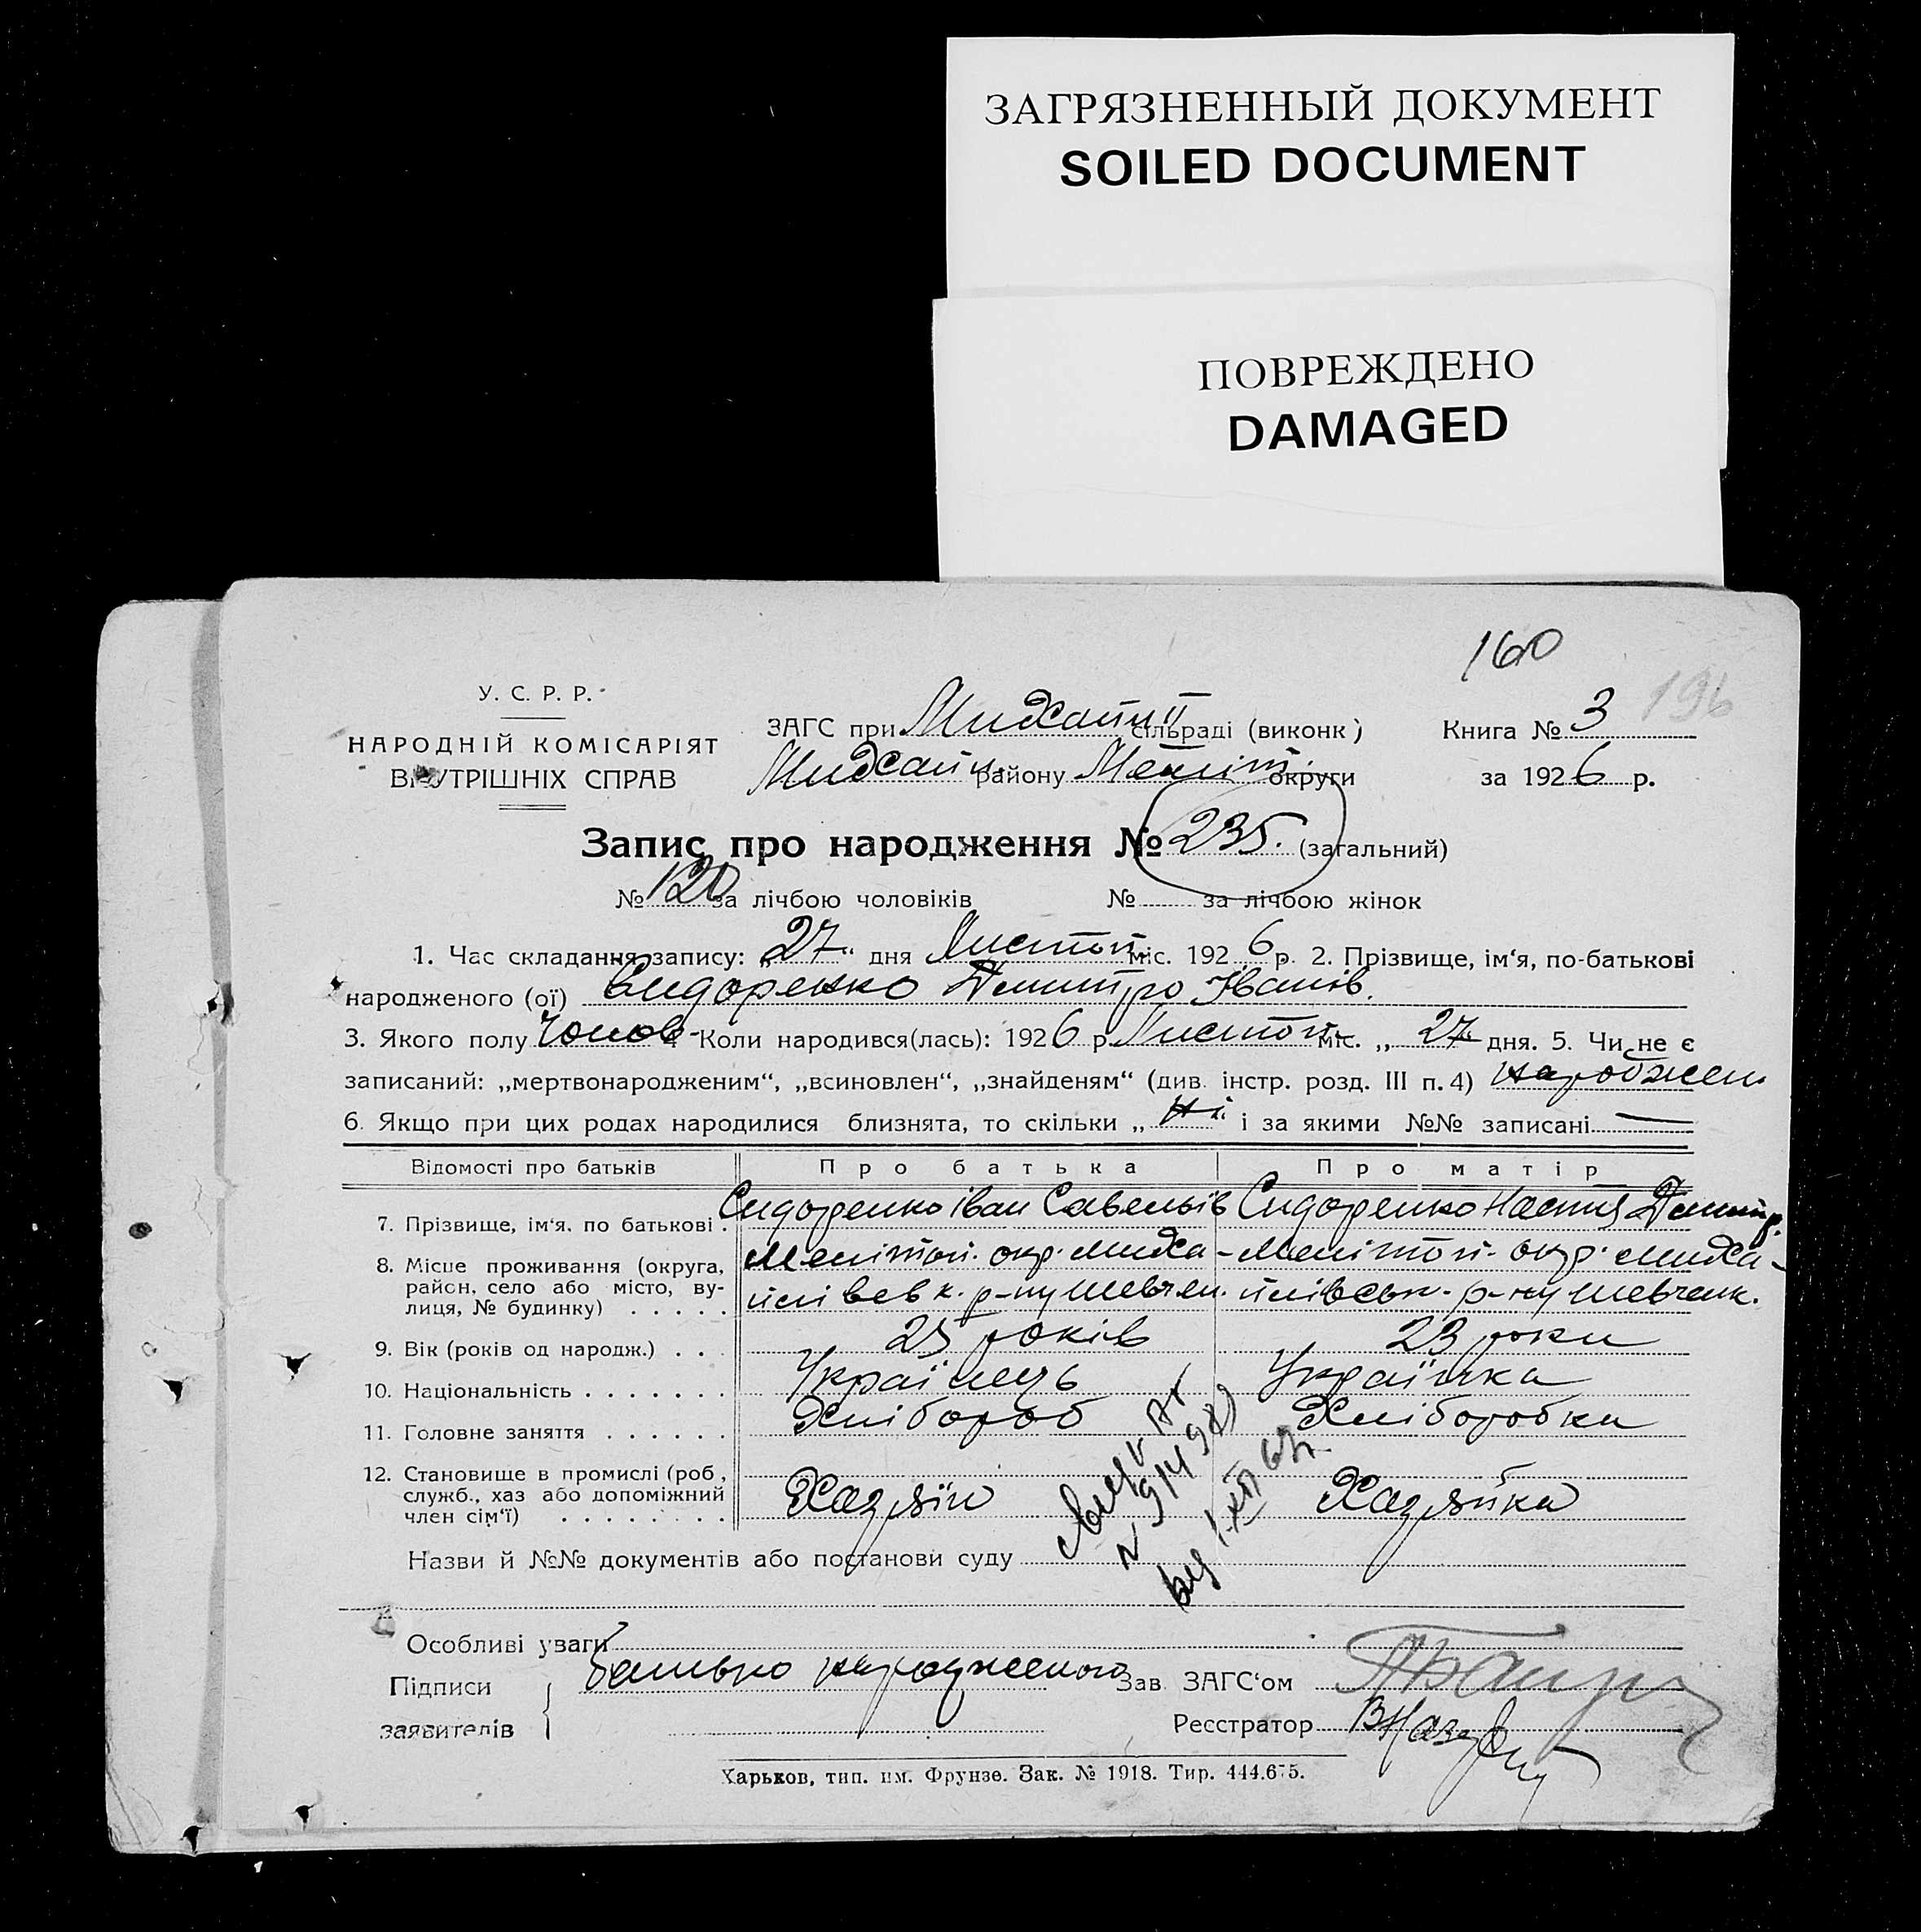 ЗАГРЯЗНЕННЫЙ ДОКУМЕНТ
SOILED DOCUMENT
ПОВРЕЖДЕНО
DAMAGED
160
196
У. С. Р. Р.
НАРОДНІЙ КОМІСАРІЯТ
ВНУТРІШНІХ СПРАВ
ЗАГС при Михайл. II сільраді (виконк)
Михайл. району Меліт. округи
Книга № 3
за 1926 р.
Запис про народження № 235. (загальний)
№ 120 за лічбою чоловіків № за лічбою жінок
1. Час складання запису: „27“ дня Листоп. міс. 1926 р. 2. Прізвище, ім‘я, по-батькові
народженого (ої) Сидоренко Дмитро Іванів.
3. Якого полу Чолов. 4 Коли народився(лась): 1926 р. Листоп. міс. „ 27 дня. 5. Чи не є
записаний: „мертвонародженим“, „всиновлен“, „знайденям“ (див. інстр. розд. III п. 4) народжен
6. Якщо при цих родах народилися близнята, то скільки „ Ні “ і за якими №№ записані —
Відомості про батьків Про батька Про матір
7. Прізвище, ім‘я, по батькові. Сидоренко Іван Савельїв Сидоренко Настя Дмитр.
8. Місце проживання (округа, район, село або місто, вулиця, № будинку) Мелітоп. окр. Миха- Мелітоп. окр. Миха-
йлівськ. р-ну Шевчен. йлівськ. р-ну Шевченк.
9. Вік (років од народж.) 25 років 23 роки
10. Національність Українець Українка
11. Головне заняття Хлібороб Хліборобка
12. Становище в промислі (роб, служб., хаз або допоміжний член сім‘ї) Хазяїн Хазяйка
Назви й №№ документів або постанови суду
Особливі уваги
Підписи заявителів батько народженого
Зав. ЗАГС‘ом
Реєстратор
Харьков, тип. им. Фрунзе. Зак. № 1918. Тир. 444.675.